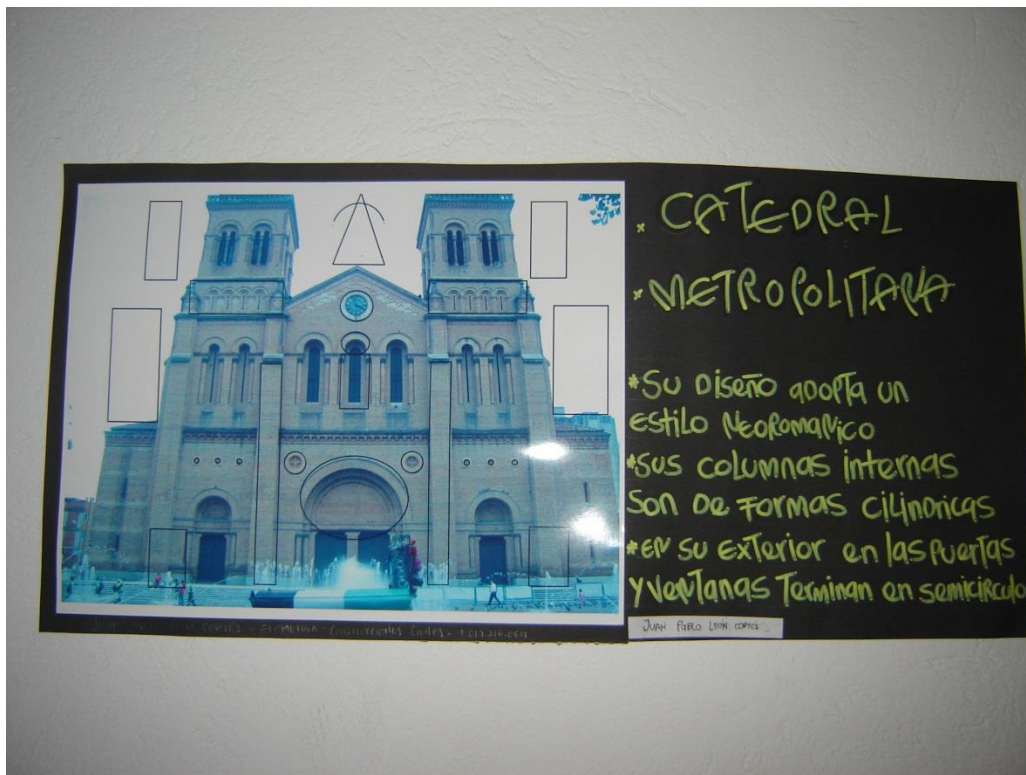 * CATEDRAL
* METROPOLITANA
*Su Diseño adopta un
estilo Neoromanico
*Sus columnas internas
son de formas cilindricas
*en su exterior en las puertas
y ventanas Terminan en semicirculo
JUAN PABLO LEÓN CORTES
CORTES - GEOMETRIA - Construcciones Civiles -